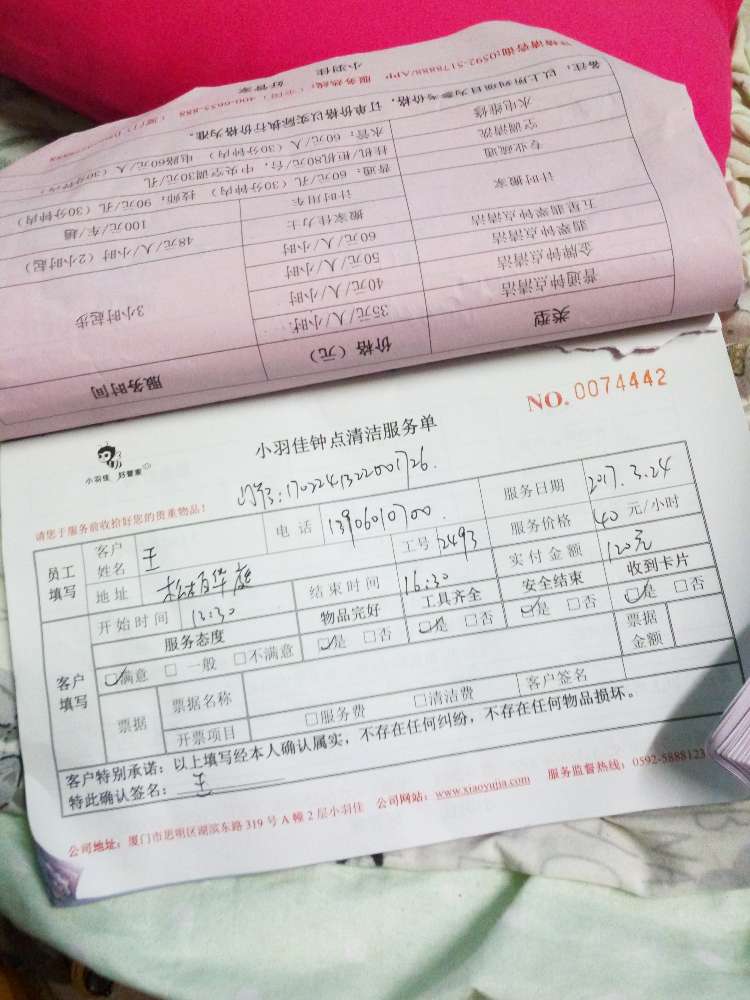 详情请咨询:0592-5178888/APP
小羽佳 好管家
备注：以上所列项目为参考价格，订单价格以实际执行价格为准。
水电维修 水管：60元/人（30分钟内） 电路60元/人（30分钟内）
空调清洗 挂机/柜机80元/台；中央空调30元/孔
专业疏通 普通：60元/孔（30分钟内） 技师：90元/孔（30分钟内）
计时搬家 计时用车 100元/车/趟
搬家佳力士 48元/人/小时（2小时起）
五星翡翠钟点清洁 60元/人/小时
翡翠钟点清洁 50元/人/小时
金牌钟点清洁 40元/人/小时
普通钟点清洁 35元/人/小时 3小时起步
类型 价格（元） 服务时间
NO.0074442
小羽佳 好管家
小羽佳钟点清洁服务单
请您于服务前收拾好您的贵重物品！
员工填写 客户姓名 王 电话 13906010700 服务日期 2017.3.24
地址 工号 2493 服务价格 40 元/小时
开始时间 13:30 结束时间 16:30 实付金额 120元
客户填写 服务态度 物品完好 工具齐全 安全结束 收到卡片
满意 □ 一般 □不满意 是 □否 是 □否 是 □否 是 □否
票据 票据名称 票据金额
开票项目 □服务费 □清洁费 客户签名
客户特别承诺：以上填写经本人确认属实，不存在任何纠纷，不存在任何物品损坏。
特此确认签名： 王
公司地址：厦门市思明区湖滨东路319号A幢2层小羽佳 公司网站：www.xiaoyujia.com 服务监督热线：0592-5888123